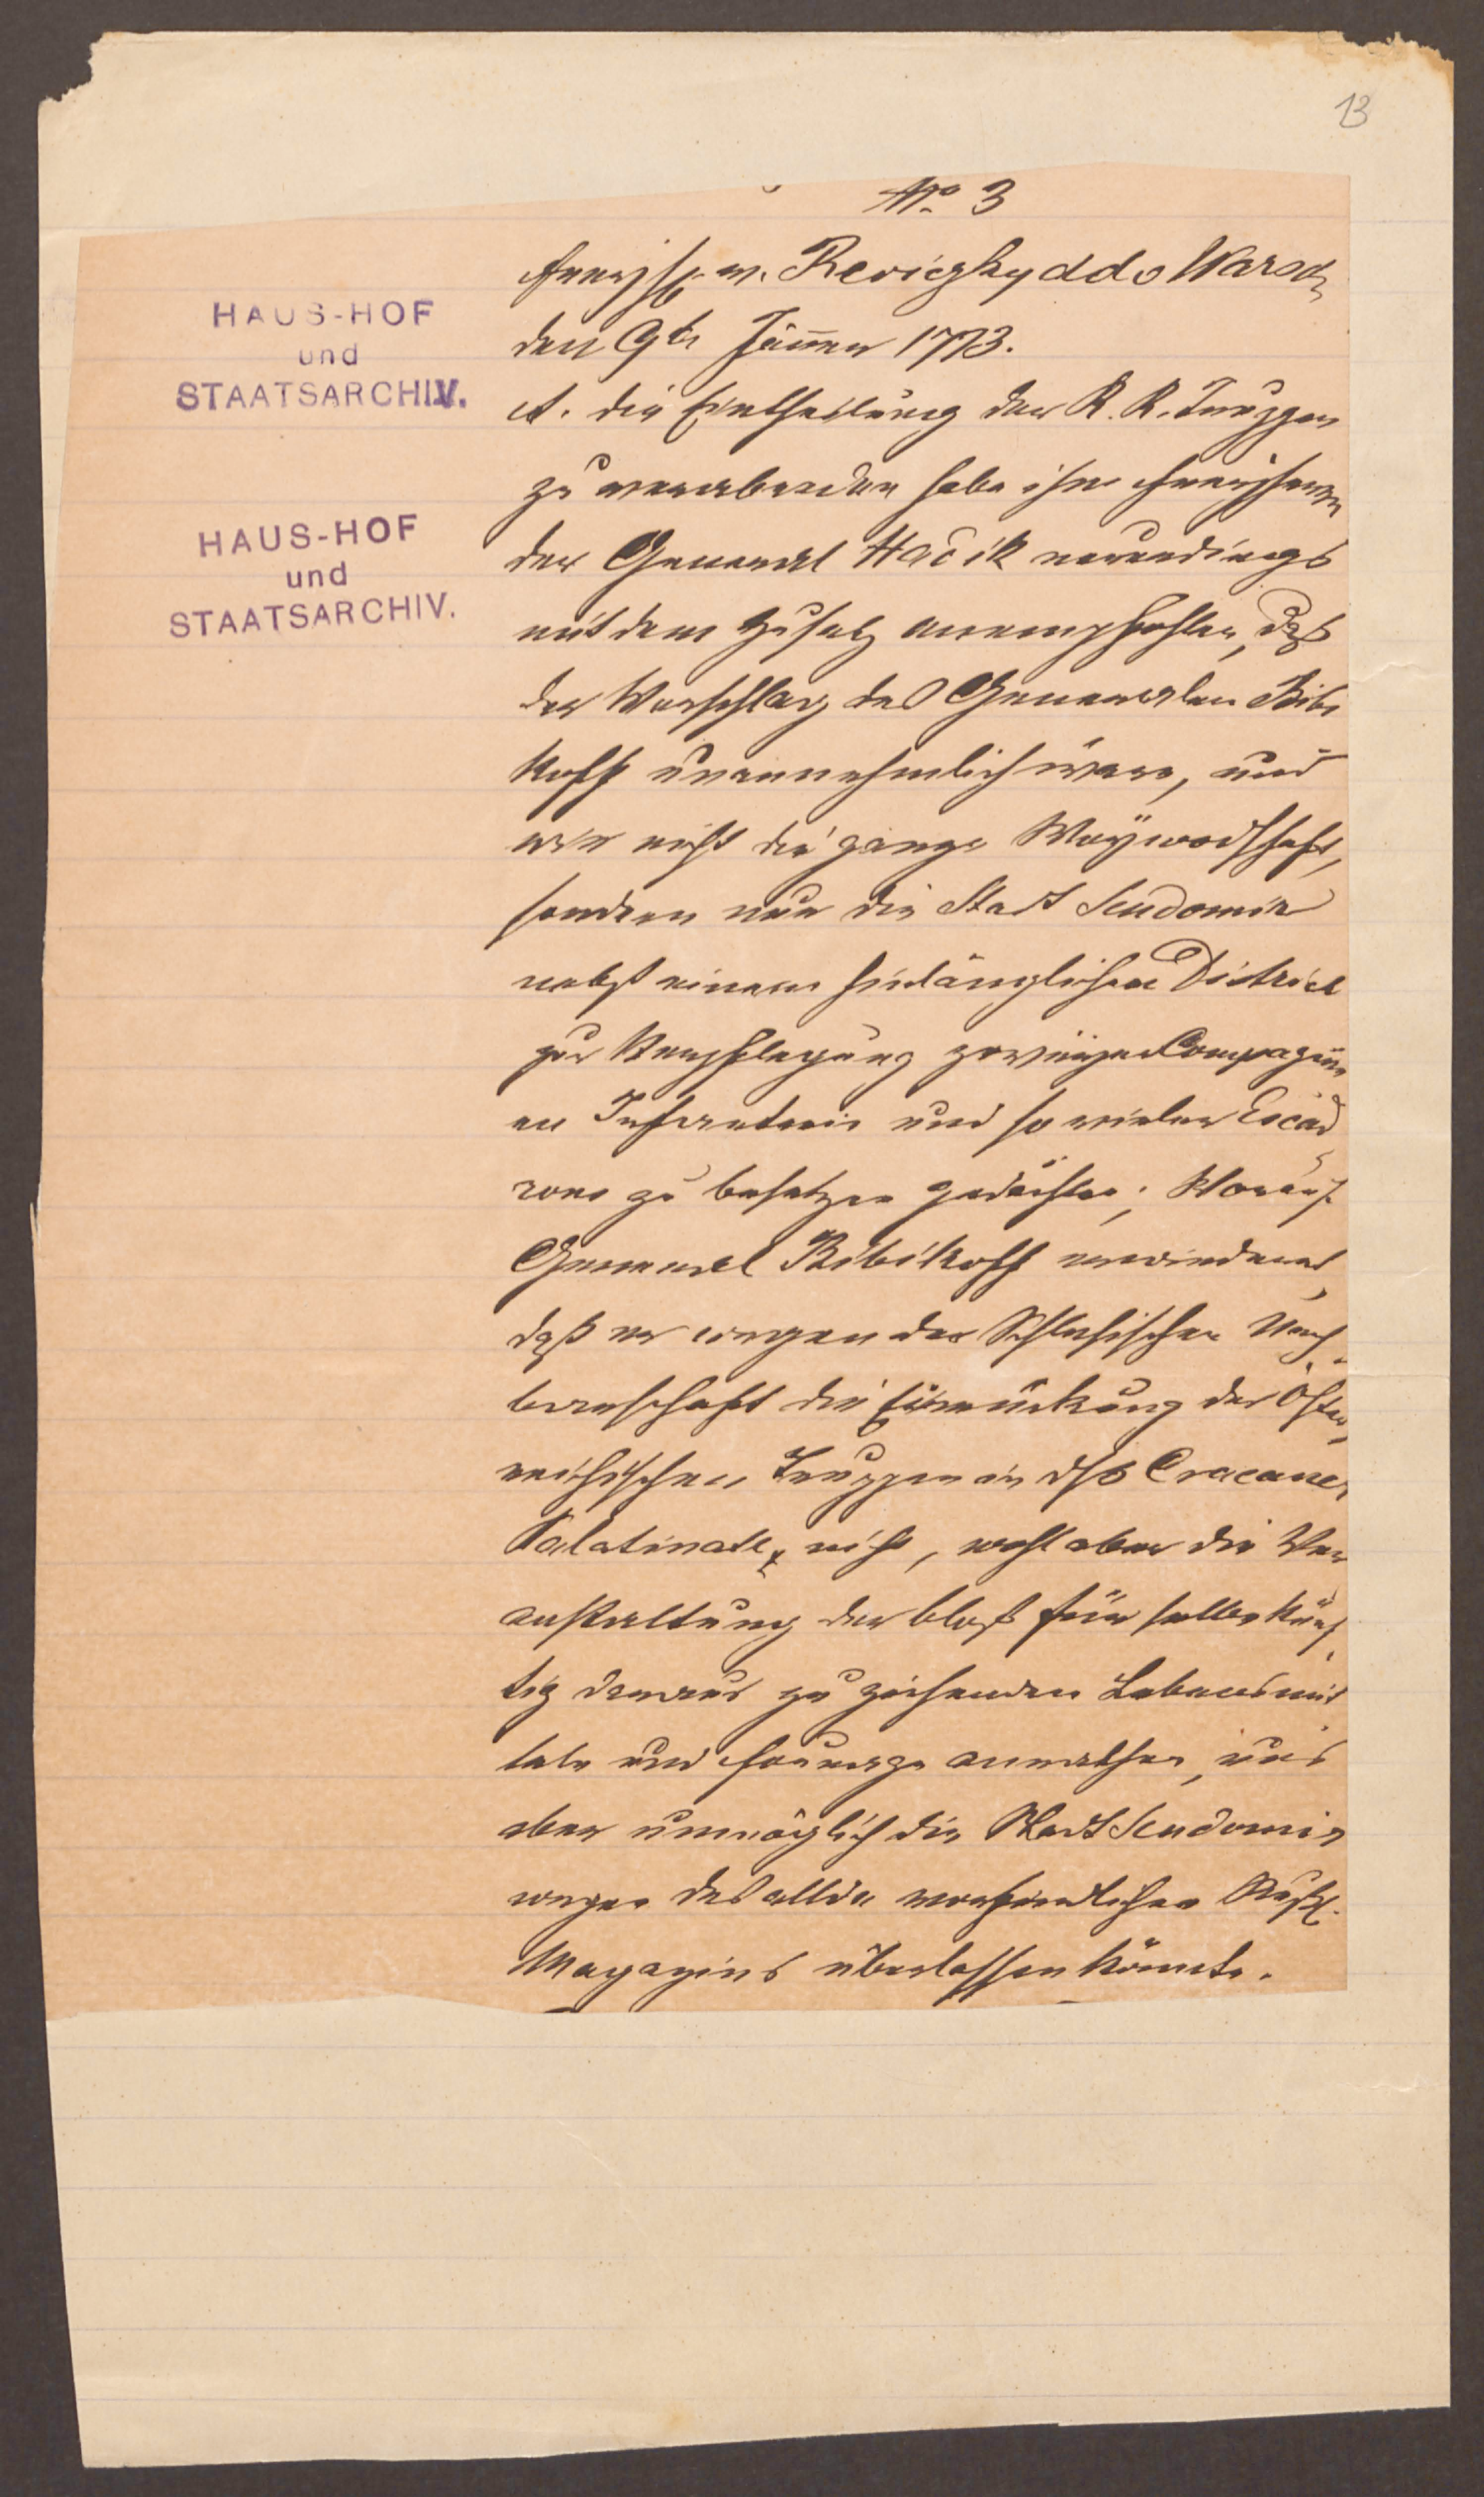 13
No. 3
Freyh. v. Reviczky ddo Warsch
den 9ten Jänner 1773.
A. die Eintheilung der K. K. Truppen
zu verabreden habe ihm Freyherrn
der General Hadik neuerdings
mit dem Zusatz anempfohlen, daß
der Vorschlag des Generalen Bibi
koff unannehmlich wäre, und
wir nicht die ganze Woywodschaft,
sondern nur die Stadt Sendomir
nebst einem hinlänglichen District
zur Verpflegung zweyer Compagni
en Infanterie und so vieler Escad
rons zu besetzen gedächten; Worauf
General Bibikoff erwiedert,
daß er wegen der Schlesischen Nach
barschaft die Einrückung der Öster
reichischen Truppen in das Cracauer
Palatinat nicht, wohl aber die Ver
anstaltung der bloß für selbe künf
tig daraus zu ziehenden Lebensmit
teln und Fourage anrathen, uns
aber unmöglich die Stadt Sendomir
wegen des allda befindlichen Russ.
Magazins überlassen könnte.
HAUS-HOF
und
STAATSARCHIV.
HAUS-HOF
und
STAATSARCHIV.